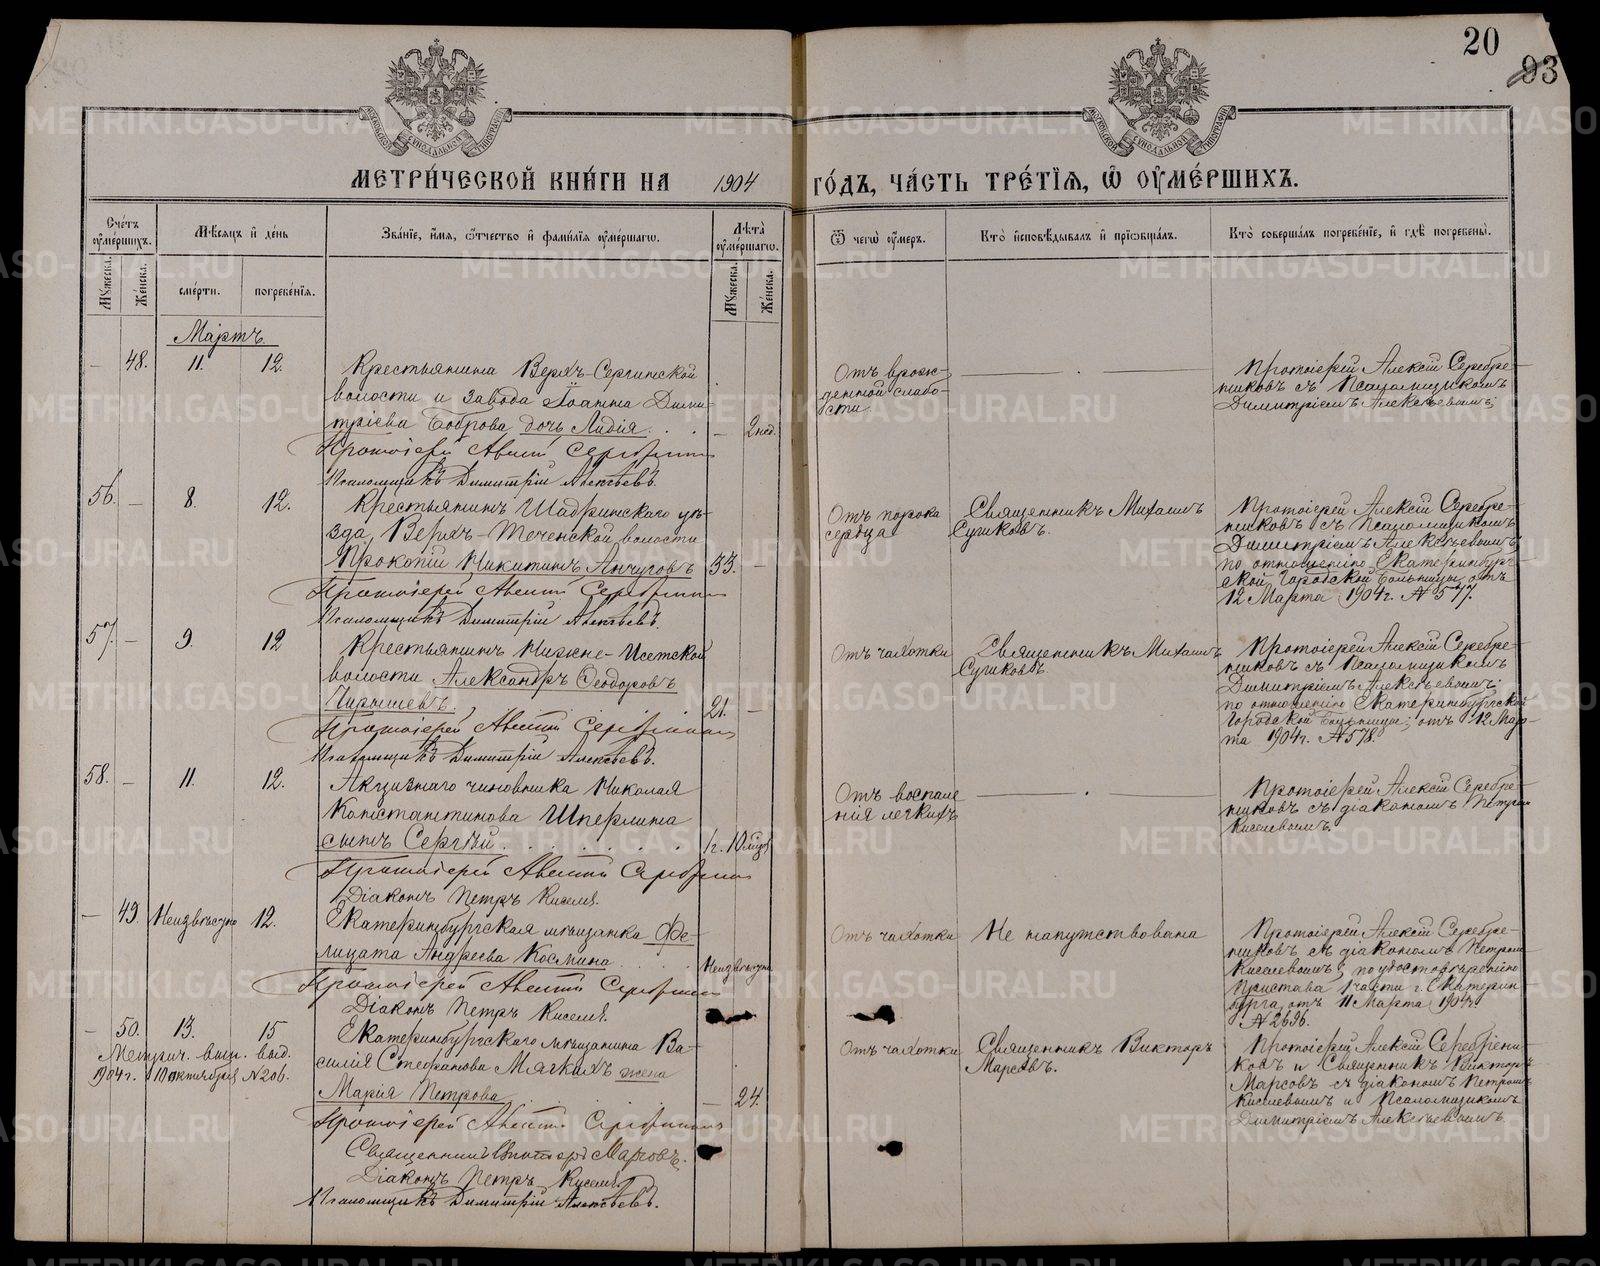 20
93
МОСКОВСКОЙ СѴНОДАЛЬНОЙ ТИПОГРАФІИ
МОСКОВСКОЙ СѴНОДАЛЬНОЙ ТИПОГРАФІИ
МЕТРИ́ЧЕСКОЙ КНИ́ГИ НА 1904 ГО́ДЪ, ЧА́СТЬ ТРЕ́ТІѦ, Ѿ ОУ҆МЕ́РШИХЪ.
Сче́тъ оу҆ме́ршихъ.
Мꙋжеска.
Же́нска.
Мѣ́сѧцъ и҆ де́нь
сме́рти.
погребе́нїѧ.
Зва́нїе, и҆́мѧ, ѻ҆́тчество и҆ фами́лїѧ оу҆ме́ршагѡ.
Лѣ́та оу҆ме́ршагѡ.
Мꙋжеска.
Же́нска.
Ѿ чегѡ̀ оу҆́меръ.
Кто̀ и҆сповѣ́дывалъ и҆ прїѡбща́лъ.
Кто̀ соверша́лъ погребе́нїе, и҆ гдѣ̀ погребены̀.
Мартъ
— 48. 11. 12.
Крестьянина Верхъ-Сергинской
волости и завода Іоанна Дими-
тріева Боброва дочь Лидія . . . — 2 нед.
Протоіерей Алексій Серебренниковъ
Псаломщикъ Димитрій Алексѣевъ.
Отъ врож-
денной слабо-
сти.
Протоіерей Алексій Серебре-
никовъ съ Псаломщикомъ
Димитріемъ Алексѣевымъ;
56. — 8. 12.
Крестьянинъ Шадринскаго уѣ-
зда, Верхъ-Теченской волости
Прокопій Никитинъ Анчуговъ 53. —
Протоіерей Алексій Серебренниковъ
Псаломщикъ Димитрій Алексѣевъ.
Отъ порока
сердца
Священникъ Михаилъ
Сушковъ.
Протоіерей Алексій Серебре-
никовъ съ Псаломщикомъ
Димитріемъ Алексѣевымъ;
по отношенію Екатеринбург-
ской Городской Больницы отъ
12 Марта 1904 г. № 577.
57. — 9. 12
Крестьянинъ Нижне-Исетской
волости Александръ Ѳеодоровъ
21. —
Протоіерей Алексій Серебренниковъ
Псаломщикъ Димитрій Алексѣевъ.
Отъ чахотки
Священникъ Михаилъ
Сушковъ.
Протоіерей Алексій Серебре-
никовъ съ Псаломщикомъ
Димитріемъ Алексѣевымъ;
по отношенію Екатеринбургской
Городской Больницы; отъ 12 Мар-
та 1904 г. № 578.
58. — 11. 12.
Акцизнаго чиновника Николая
Константинова Шперлинга
сынъ Сергѣй . . . . . . 1 г. 10 мѣс.
Протоіерей Алексій Серебренниковъ
Діаконъ Петръ Киселевъ.
Отъ воспале
нія легкихъ
Протоіерей Алексій Серебре-
никовъ съ діакономъ Петромъ
Киселевымъ.
— 49. Неизвѣстно 12.
Екатеринбургская мѣщанка Фе-
лицата Андреева Космина . . . Неизвѣстно
Протоіерей Алексій Серебренниковъ
Діаконъ Петръ Киселевъ.
Отъ чахотки
Не напутствована
Протоіерей Алексій Серебре-
никовъ съ діакономъ Петромъ
Киселевымъ; по удостовѣренію
Пристава 1 части г. Екатерин-
бурга отъ 11 Марта 1904 г.
№ 2696.
— 50. 13. 15
Метрич. вып. выд.
1904 г. 10 октября № 206.
Екатеринбургскаго мѣщанина Ва-
силія Стефанова Мягкихъ жена
Марія Петрова . . . — 24.
Протоіерей Алексій Серебренниковъ
Священникъ Викторъ Марсовъ.
Діаконъ Петръ Киселевъ.
Псаломщикъ Димитрій Алексѣевъ.
Отъ чахотки
Священникъ Викторъ
Марсовъ.
Протоіерей Алексій Серебрени-
ковъ и Священникъ Викторъ
Марсовъ съ діакономъ Петромъ
Киселевымъ и Псаломщикомъ
Димитріемъ Алексѣевымъ.
METRIKI.GASO-URAL.RU